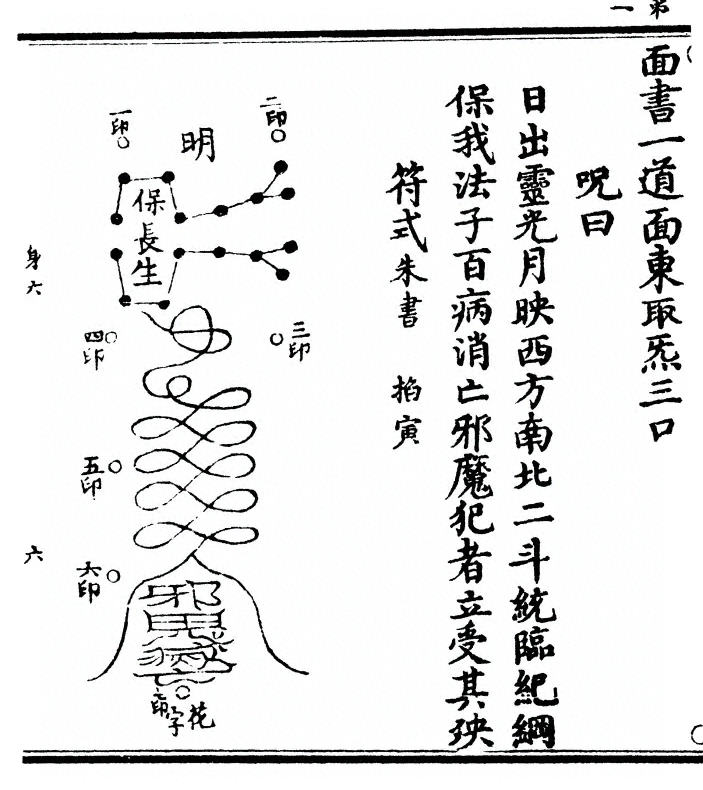 第一
面書一道面東取炁三口
咒曰
日出靈光月映西方南北二斗統臨紀綱
保我法子百病消亡邪魔犯者立受其殃
符式朱書 掐寅
二印
明
一印
保長生
三印
四印
五印
六印
花字
身六
六